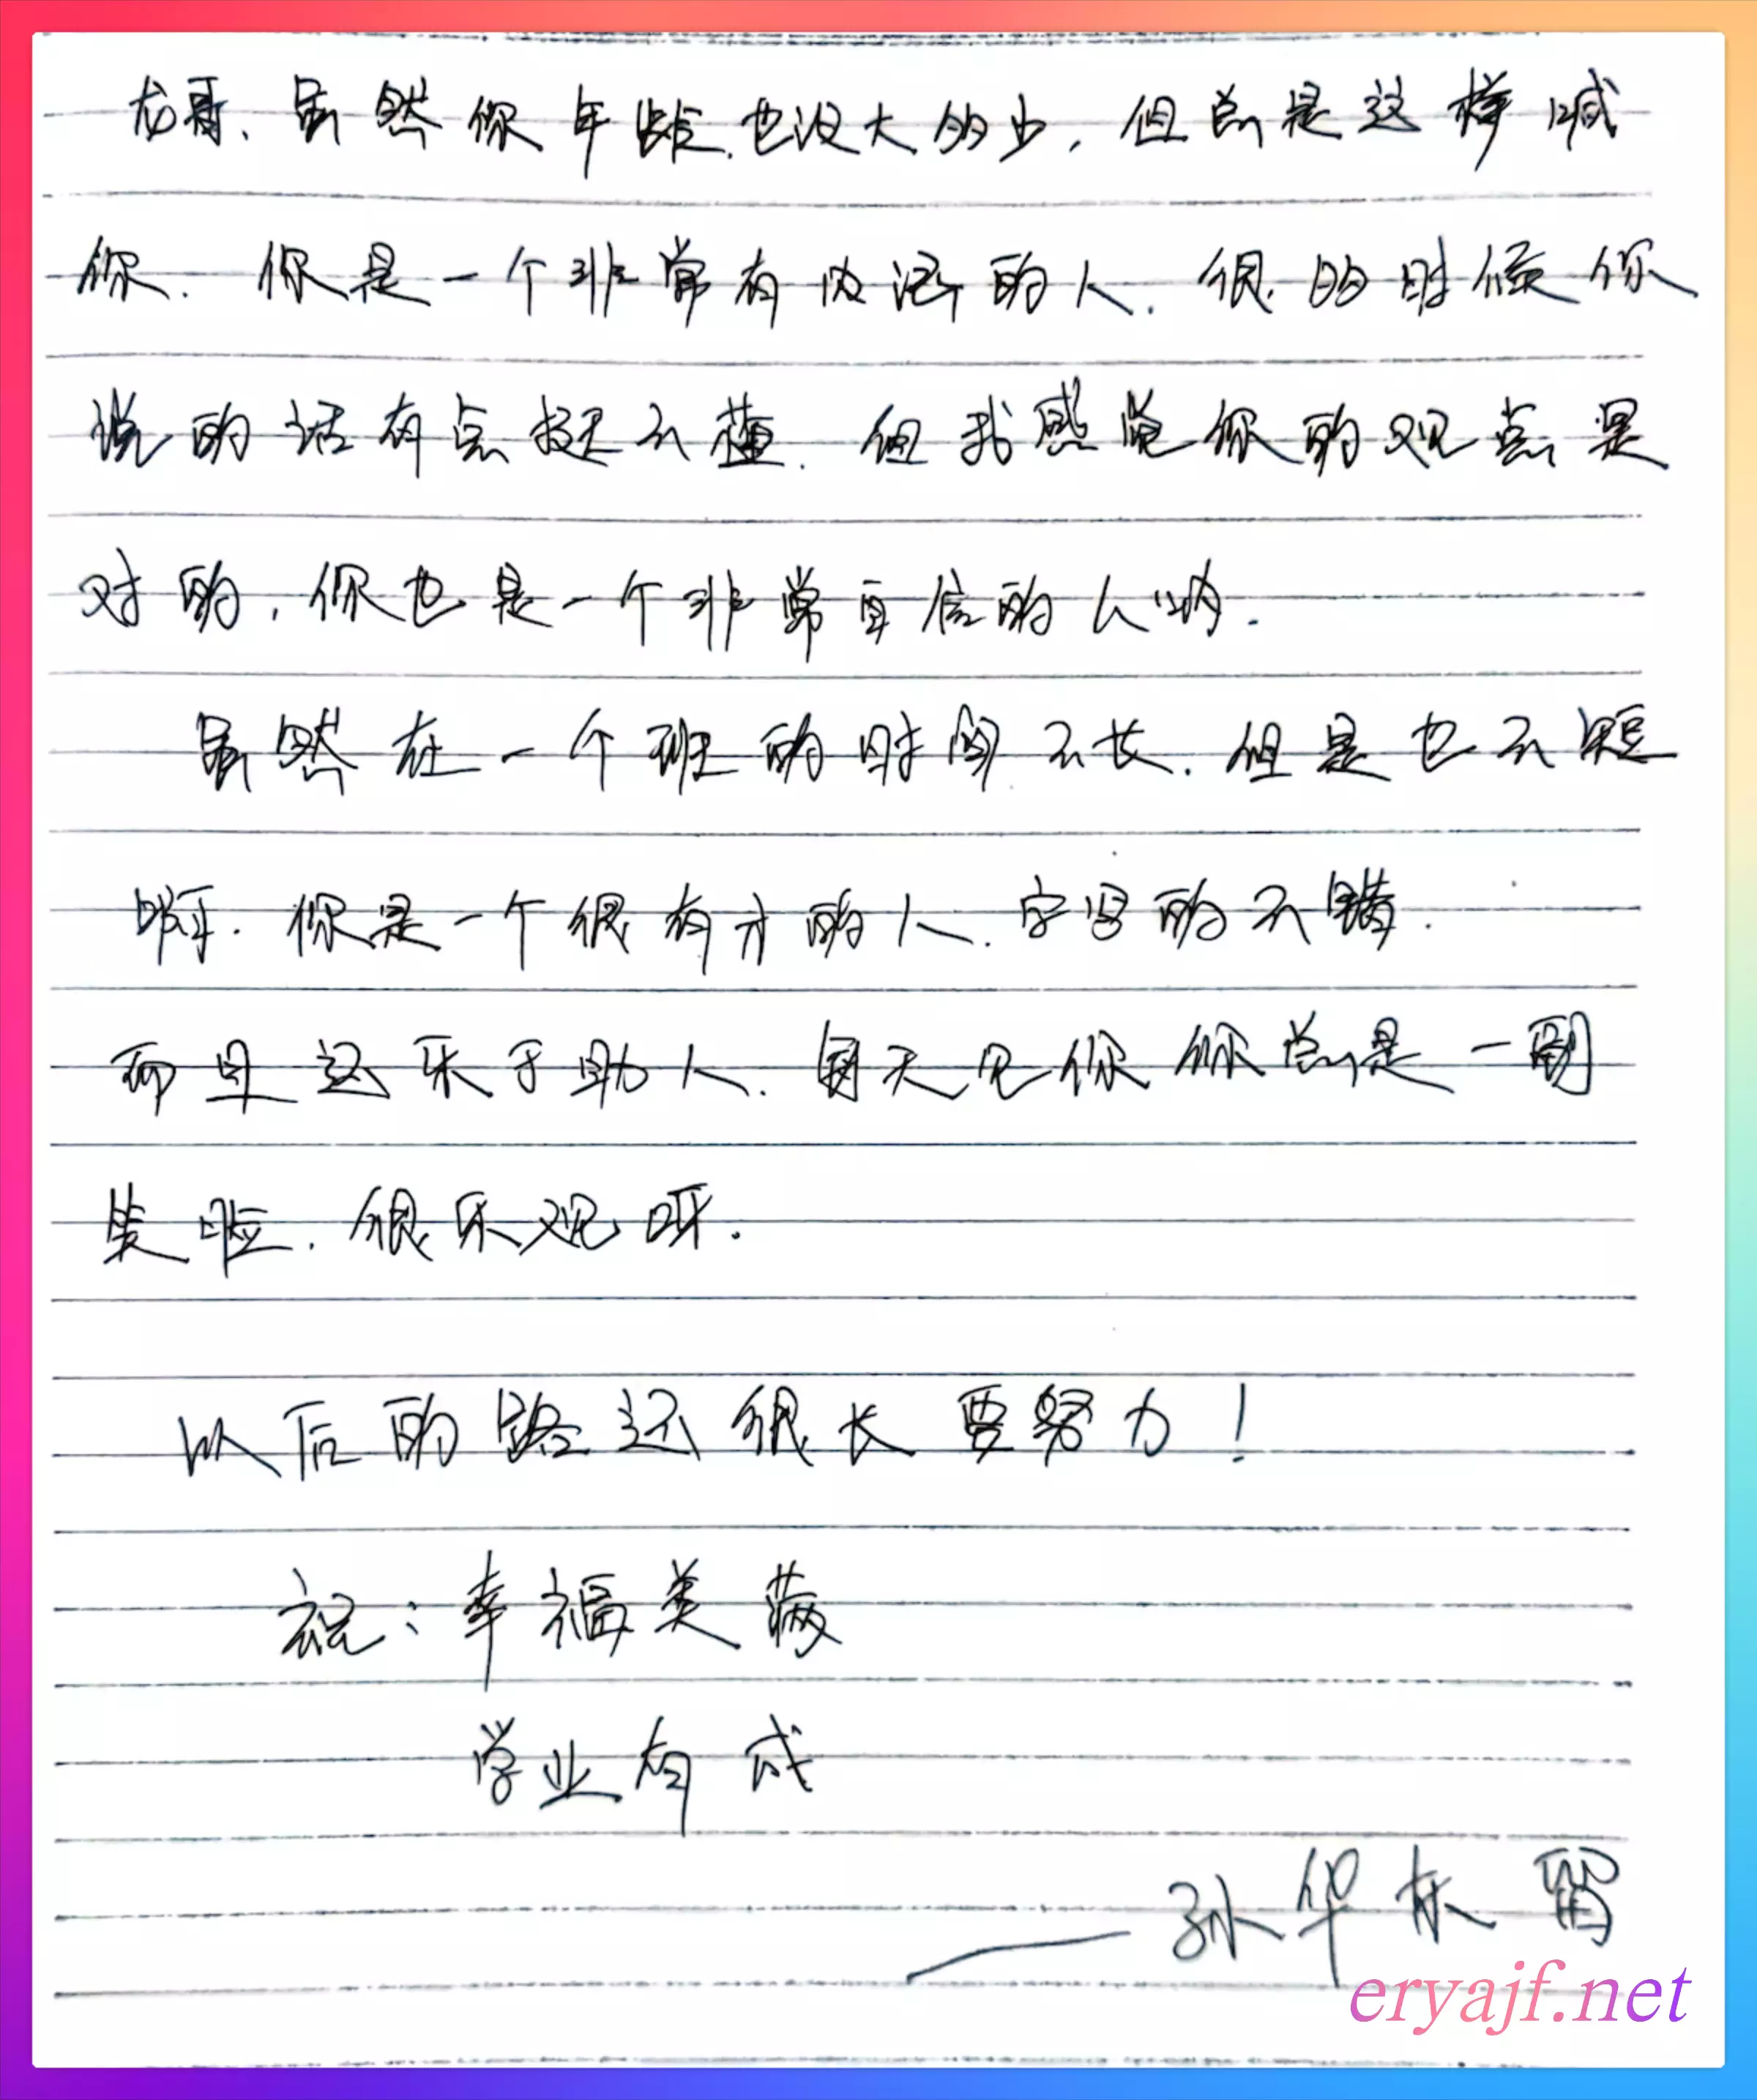 龙哥、虽然你年龄也没大多少，但总是这样喊
你. 你是一个非常有内涵的人. 很的时候你
说的话有点挺不懂. 但我感觉你的观点是
对的，你也是一个非常自信的人呐.
虽然在一个班的时间不长. 但是也不短
啊. 你是一个很有才的人. 字写的不错.
而且这乐于助人. 每天见你你总是一副
笑脸. 很乐观呀.
以后的路还很长要努力！
祝：幸福美满
学业有成
—— 孙华林 留
eryajf.net